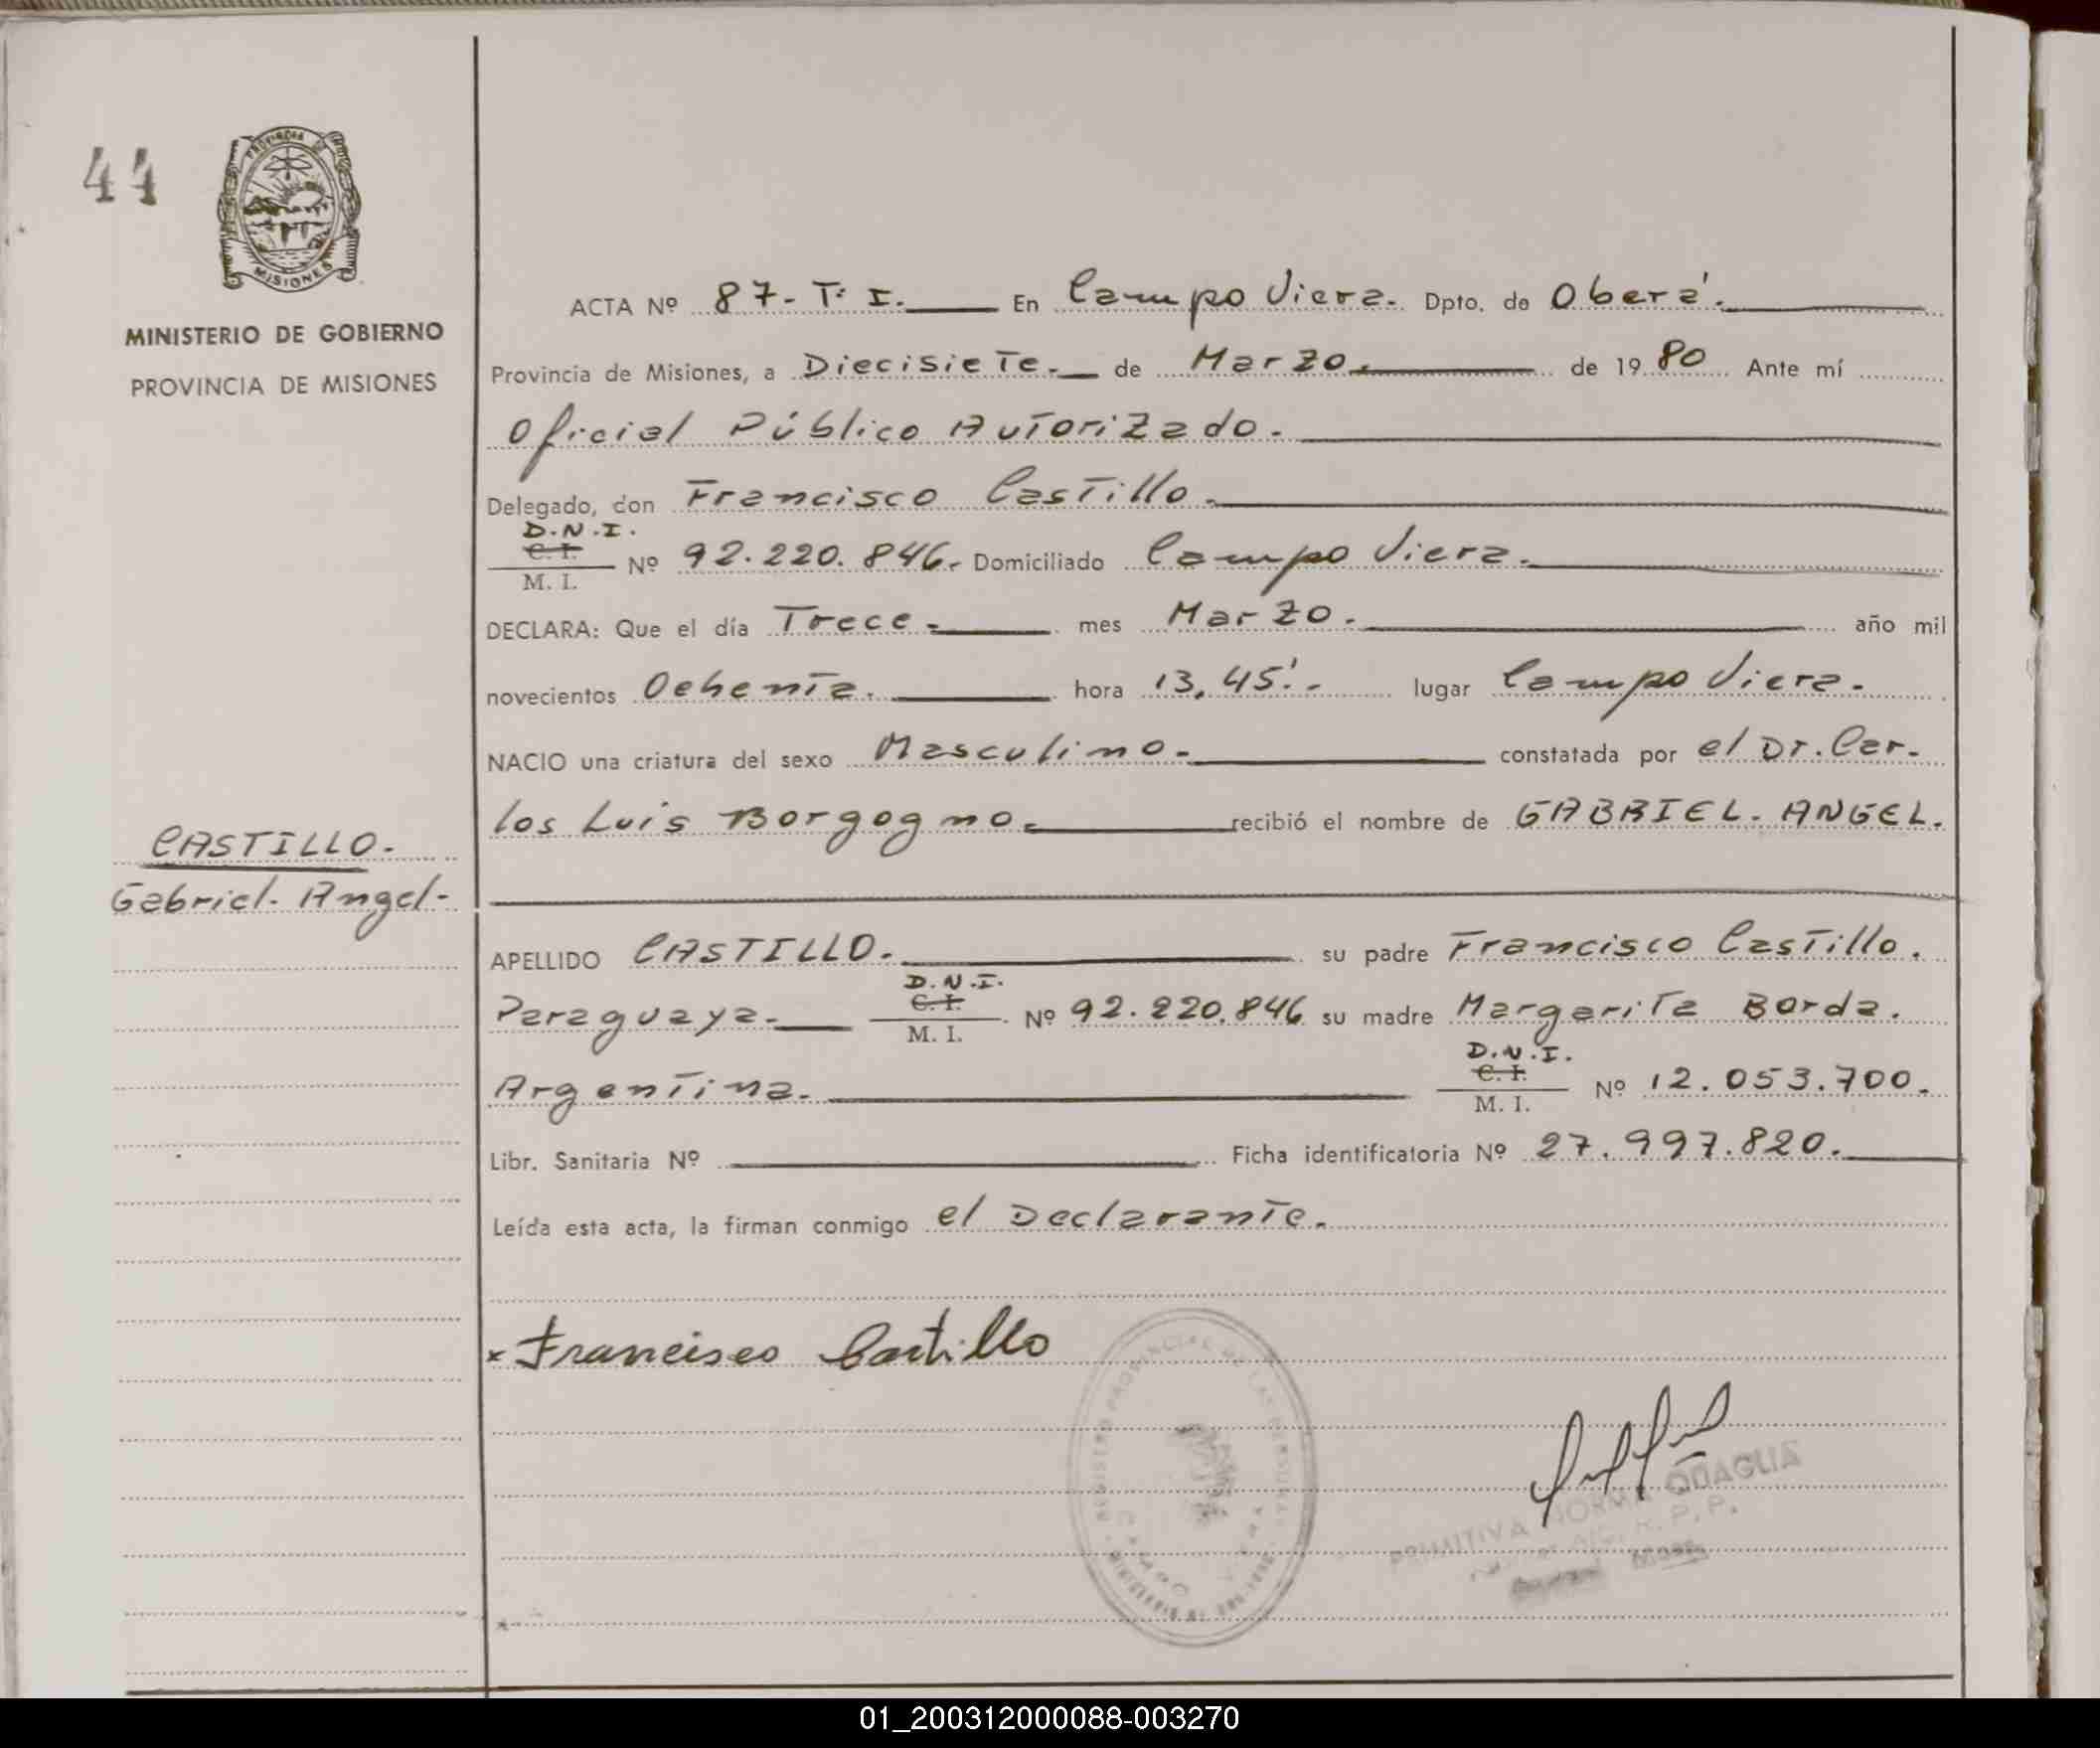 44
PROVINCIA DE
MISIONES
MINISTERIO DE GOBIERNO
PROVINCIA DE MISIONES
CASTILLO.
Gabriel. Angel-
ACTA Nº 87- Tº I. En Campo Viera. Dpto. de Oberá.
Provincia de Misiones, a Diecisiete. de Marzo. de 1980 Ante mí
Oficial Público Autorizado.
Delegado, don Francisco Castillo.
D.N.I.
C. I.
M. I.
Nº 92.220.846. Domiciliado Campo Viera.
DECLARA: Que el día Trece. mes Marzo. año mil
novecientos Ochenta. hora 13,45'.- lugar Campo Viera.
NACIO una criatura del sexo Masculino. constatada por el Dr. Car-
los Luis Borgogno. recibió el nombre de GABRIEL. ANGEL.
APELLIDO CASTILLO. su padre Francisco Castillo.
D.N.I.
C. I.
M. I.
Paraguaya. Nº 92.220.846 su madre Margarita Borda.
D.N.I.
C. I.
M. I.
Argentina. Nº 12.053.700.
Libr. Sanitaria Nº Ficha identificatoria Nº 27.997.820.
Leída esta acta, la firman conmigo el Declarante.
x Francisco Castillo
REGISTRO PROVINCIAL DE LAS PERSONAS
PRIMITIVA NORMA QUAGLIA
R. P. P.
01_200312000088-003270